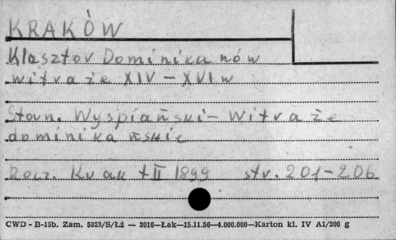 KRAKÓW
Klasztor Dominikanów
witraże XIV – XVI w
Stan. Wyspiański – Witraże
dominikańskie
Rocz. Krak t II 1899 str. 201-206
CWD - B-15b. Zam. 5823/S/Łż — 3016—Łak—15.11.56—4.000.000—Karton kl. IV A1/200 g